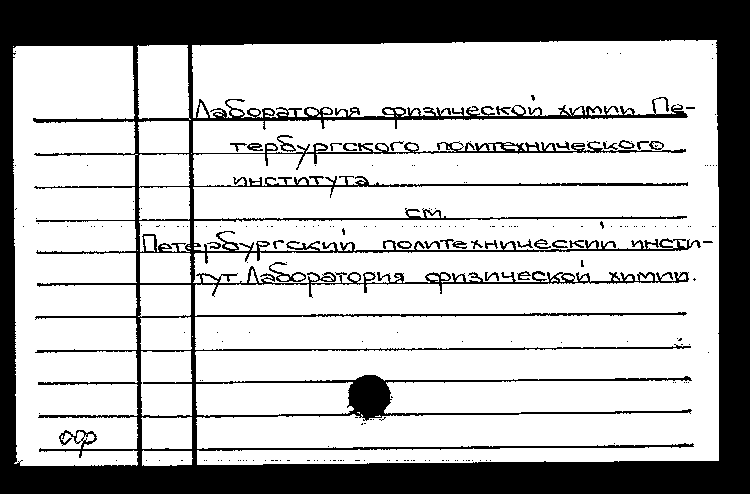 Лаборатория физической химии Пе-
тербургского политехнического
института.
см.
Петербургский политехнический инсти-
тут. Лаборатория физической химии.